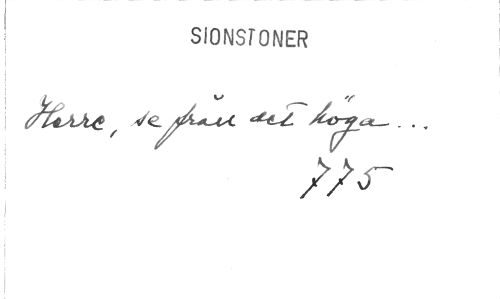 SIONSTONER
Herre, se från det höga...
775